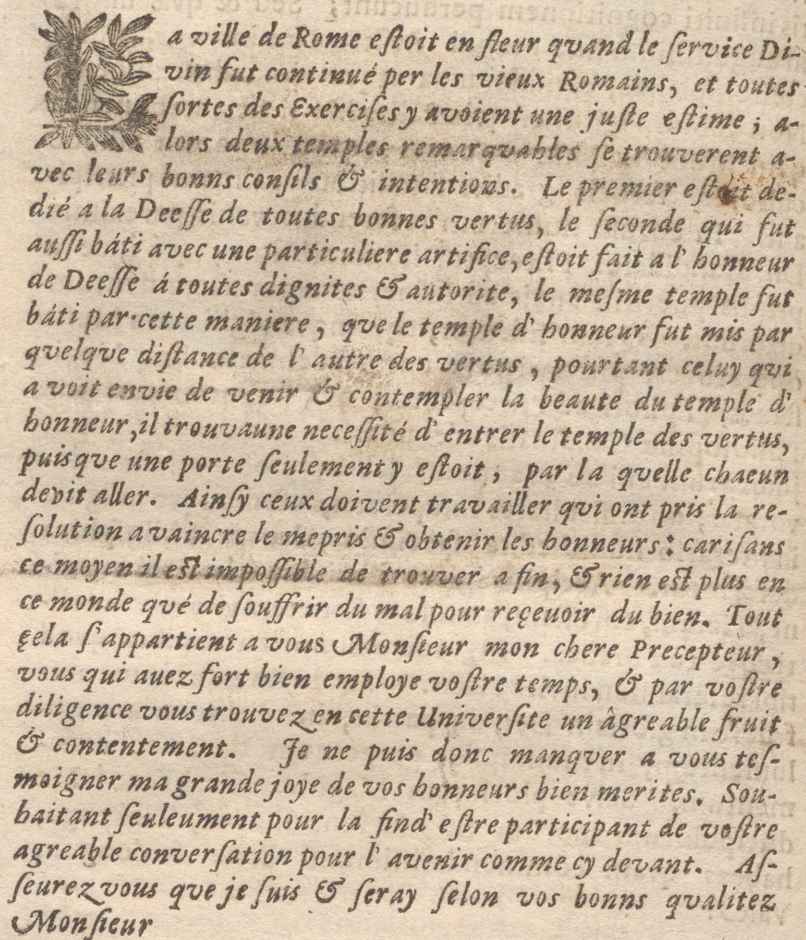 La ville de Rome estoit en fleur qvand le service Di-
vin fut continué per les vieux Romains, et toutes
sortes des Exercises y avoient une juste estime; a-
lors deux temples remarqvables se trouverent a-
vec leurs bonns consils & intentions. Le premier estoit de-
dié a la Deesse de toutes bonnes vertus, le seconde qui fut
aussi báti avec une particuliere artifice, estoit fait a l' honneur
de Deesse á toutes dignites & autorite, le mesme temple fut
báti par cette maniere, que le temple d' honneur fut mis par
quelque distance de l' autre des vertus, pourtant celuy qui
a voit envie de venir & contempler la beaute du temple d'
honneur, il trouvaune necessité d' entrer le temple des vertus,
puisque une porte seulement y estoit, par la qvelle chaeun
devit aller. Ainsy ceux doivent travailler qui ont pris la re-
solution a vaincre le mepris & obtenir les honneurs: carisans
ce moyen il est impossible de trouver a fin, & rien est plus en
ce monde qvé de souffrir du mal pour reçeuoir du bien. Tout
çela s'appartient a vous Monsieur mon chere Precepteur,
vous qui auez fort bien employe vostre temps, & par vostre
diligence vous trouvez en cette Universite un âgreable fruit
& contentement. Je ne puis donc manqver a vous tes-
moigner ma grande joye de vos honneurs bien merites. Sou-
haitant seuleument pour la find' estre participant de vostre
agreable conversation pour l' avenir comme cy devant. As-
seurez vous que je suis & seray selon vos bonns qvalitez
Monsieur